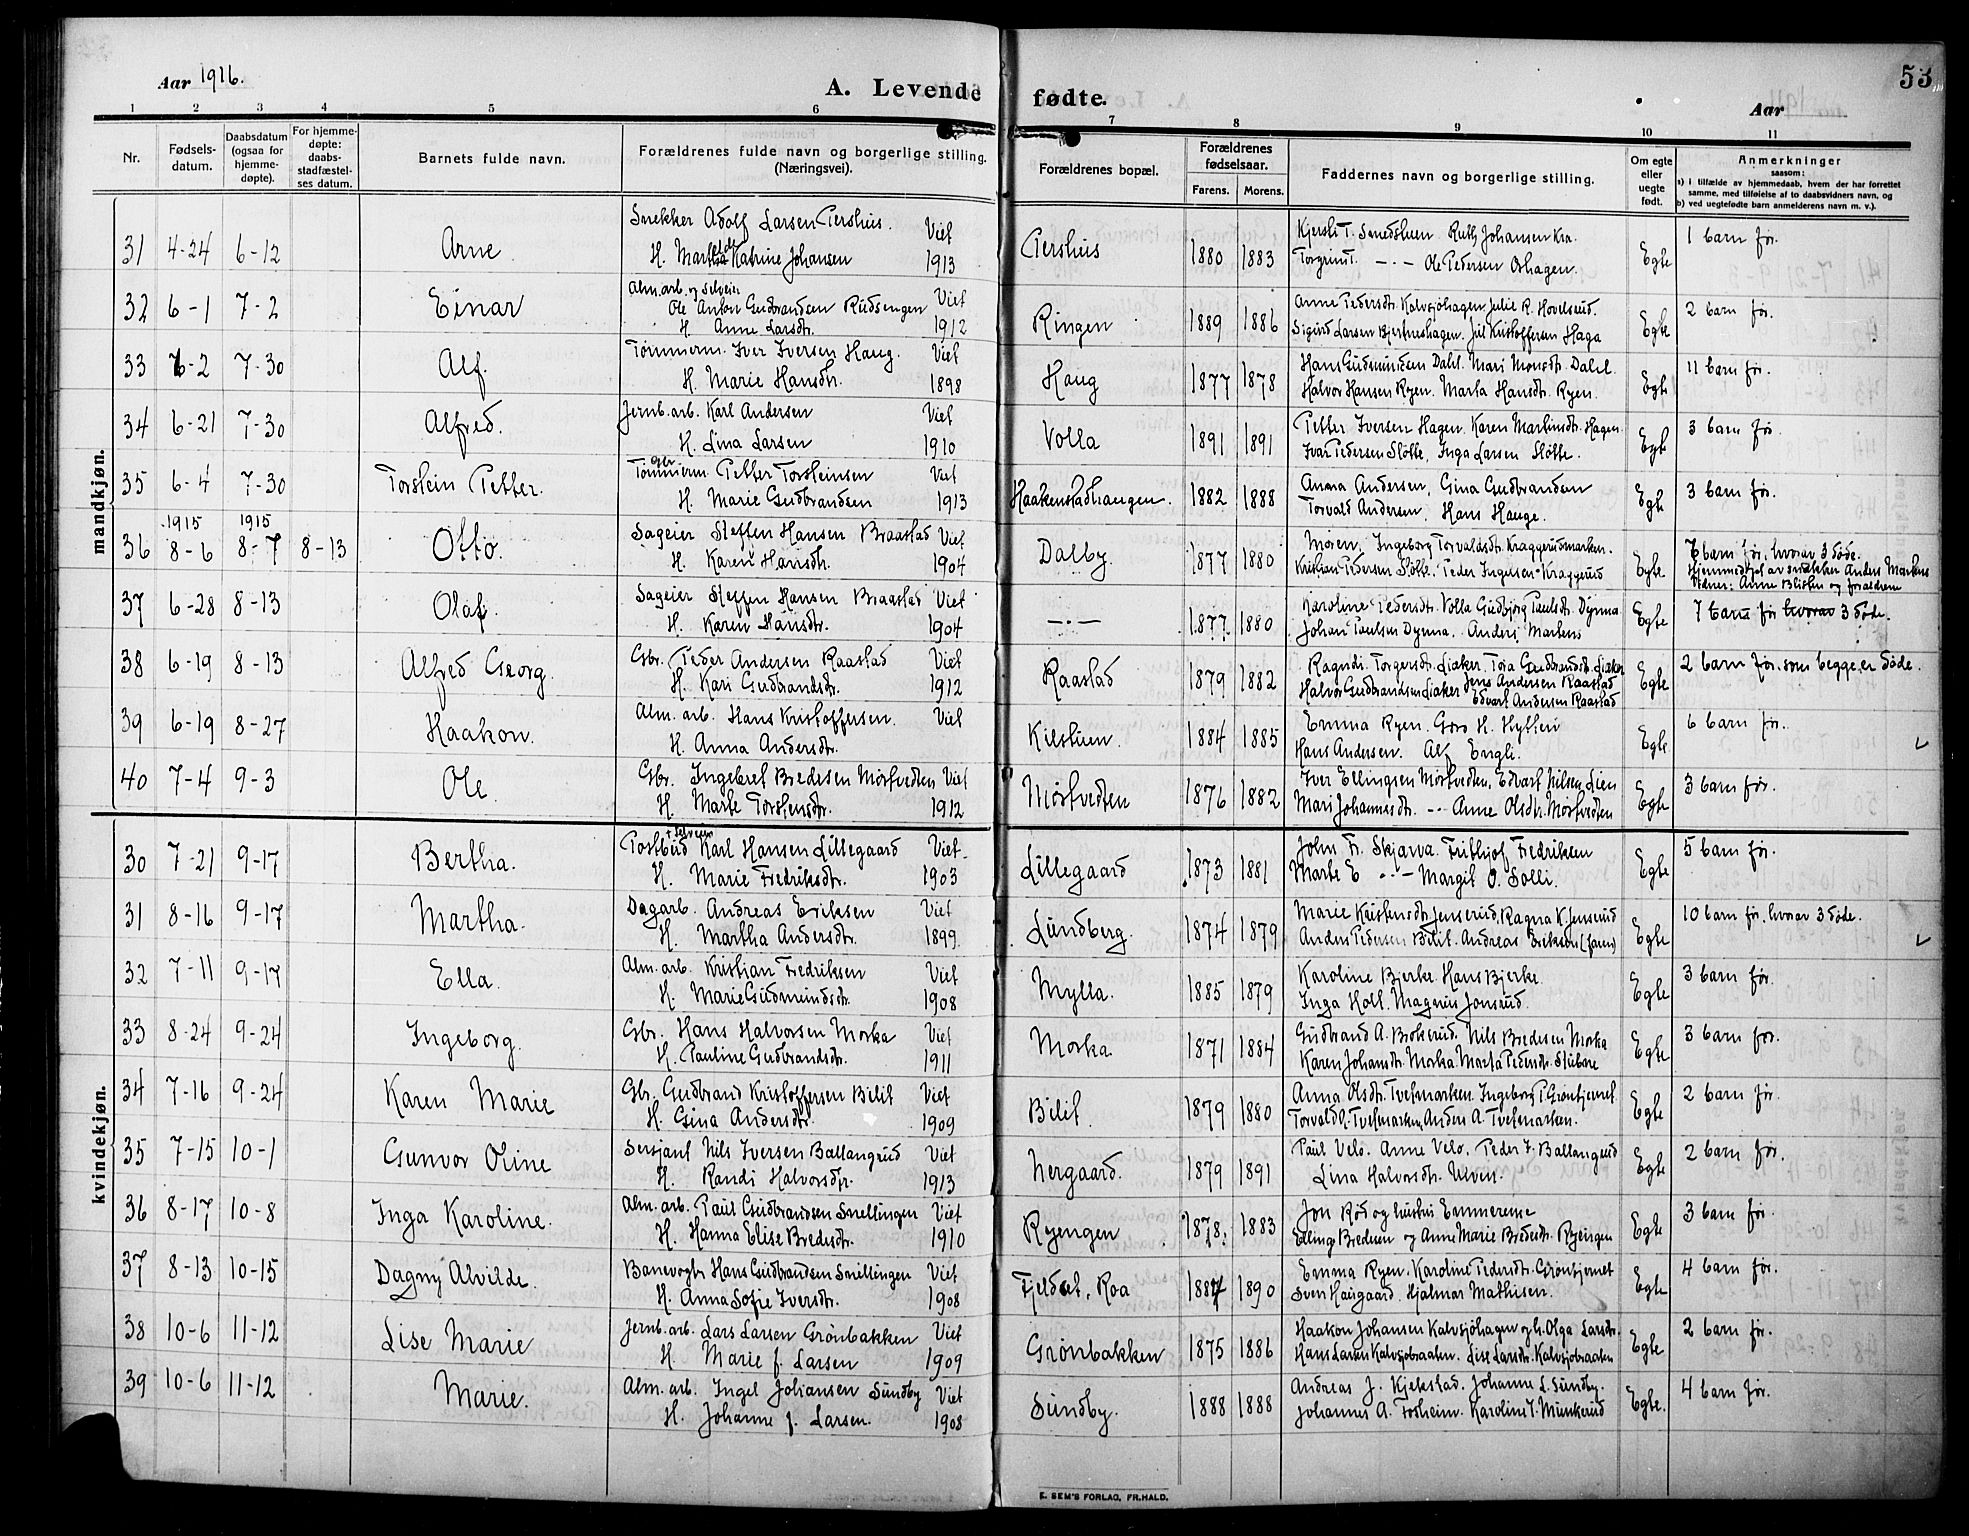 Aar 1916.
A. Levende fødte.
Aar
53
1 2 3 4 5 6 7 8 9 10 11
Nr.
Fødsels-datum.
Daabsdatum (ogsaa for hjemme-døpte).
For hjemme-døpte: daabs-stadfæstel-ses datum.
Barnets fulde navn.
Forældrenes fulde navn og borgerlige stilling. (Næringsvei).
Forældrenes bopæl.
Forældrenes fødselsaar.
Farens. Morens.
Faddernes navn og borgerlige stilling.
Om egte eller uegte født.
Anmerkninger
saasom:
a) i tilfælde av hjemmedaab, hvem der har forrettet samme, med tilføielse af to daabsvidners navn, og
b) ved uegtefødte barn anmelderens navn m. v.).
mandkjøn.
31 4-24 6-12 Arne Snekker Adolf Larsen Pershus. Viet
H. Martha Katrine Johansen 1913 Pershus 1880 1883 Kjersti T. Smedshuen Ruth Johansen Kra.
Torgrim T. -·- Ole Pedersen Oshagen. Egte 1 barn før.
32 6-1 7-2 Einar Alm. arb. og selveier
Ole Anton Gudbrandsen Rudsengen Viet
H. Anne Larsdtr. 1912 Ringen 1889 1886 Anne Pedersdtr. Kalvsjøhagen, Julie R. Hovelsrud.
Sigurd Larsen Bjertneshagen. Jul Kristoffersen Haga Egte 2 barn før.
33 6-2 7-30 Alf. Tømmerm. Iver Iversen Haug. Viet
H. Marie Hansdtr. 1898 Haug 1877 1878 Hans Gudmundsen Dahl. Mari Monsdtr. Dahl.
Halvor Hansen Ryen. Marta Hansdtr. Ryen. Egte 11 barn før.
34 6-21 7-30 Alfred. Jernb. arb. Karl Andersen Viet
H. Lina Larsen 1910 Volla 1891 1891 Petter Iversen Hagen. Karen Martinsdtr. Hagen.
Ivar Pedersen Sløtte, Inga Larsen Sløtte. Egte 3 barn før.
35 6-4 7-30 Torstein Petter. Tømmerm. Petter Torsteinsen Viet
H. Marie Gudbrandsen 1913 Haakenstadhaugen. 1882 1888 Anna Andersen, Gina Gudbrandsen
Torvald Andersen, Hans Hauge. Egte 3 barn før.
36 1915 8-6 1915 8-7 8-13 Otto. Sageier Steffen Hansen Braastad Viet
H. Karen Hansdtr. 1904 Dalby. 1877 1880 Moren, Ingeborg Torvaldsdtr. Kraggerudmarken.
Kristian Pedersen Sløtte. Peder Ingelsen Kraggerud Egte 7 barn før, hvorav 3 døde.
Hjemmedøpt av snekker Anders Martens
Vidner: Anne Blisten og forældrene
37 6-28 8-13 Olaf. Sageier Steffen Hansen Braastad Viet
H. Karen Hansdtr. 1904 -·- 1877 1880 Karoline Pedersdtr. Volla Gudbjørg Paulsdtr. Dynna
Johan Paulsen Dynna. Anders Martens Egte 7 barn før hvorav 3 døde.
38 6-19 8-13 Alfred Georg. Gbr. Peder Andersen Raastad Viet
H. Kari Gudbrandsdtr. 1912 Raastad 1879 1882 Ragndi Torgersdtr. Liaker, Tora Gudbrandsdtr. Liaker
Halvor Gudbrandsen Liaker Jens Andersen Raastad
Edvart Andersen Raastad Egte 2 barn før. som begge er døde.
39 6-19 8-27 Haakon. Alm. arb. Hans Kristoffersen. Viet
H. Anna Andersdtr. Kilstuen. 1884 1885 Emma Ryen. Goro H. Hytten
Hans Andersen. Alf Engli. Egte 6 barn før.
40 7-4 9-3 Ole. Gbr. Ingebret Bredesen Morstvedten Viet
H. Marte Torstensdtr. 1912 Morstvedten 1876 1882 Iver Ellingsen Morstvedten, Edvart Nilsen Lien
Mari Johannesdtr. -·- Anne Olsdtr. Morstvedten Egte 3 barn før.
kvindekjøn.
30 7-21 9-17 Bertha. Postbud + selveier Karl Hansen Lillegaard Viet
H. Marie Fredriksdtr. 1903 Lillegaard 1873 1881 John Fr. Skjarva. Frithjof Fredriksen
Marte E -·- Margit O. Solli. Egte 5 barn før.
31 8-16 9-17 Martha. Dagarb. Andreas Eriksen Viet
H. Martha Andersdtr. 1899 Lundberg. 1874 1879 Marie Kristensdtr. Jensrud, Ragna K. Jensrud
Anders Pedersen Bilit. Andreas Eriksen (faren) Egte 10 barn før, hvorav 3 døde.
32 7-11 9-17 Ella. Alm. arb. Kristian Fredriksen Viet
H. Marie Gudmundsdtr. 1908 Mylla. 1885 1879 Karoline Bjerke. Hans Bjerke.
Inga Holt. Magnus Jonsrud. Egte 3 barn før.
33 8-24 9-24 Ingeborg. Gbr. Hans Halvorsen Morka Viet
H. Pauline Gudbrandsdtr. 1911 Morka 1871 1884 Gudbrand A. Brokerud. Nils Bredesen Morka
Karen Johansdtr. Morka. Marta Pedersdtr. Stubne Egte 3 barn før.
34 7-16 9-24 Karen Marie Gbr. Gudbrand Kristoffersen Bilit Viet
H. Gina Andersdtr. 1909 Bilit. 1879 1880 Anna Olsdtr. Tvetmarken. Ingeborg P. Grøntjernet
Torvald O. Tvetmarken, Anders A. Tvetemarken. Egte 2 barn før.
35 7-15 10-1 Gunvor Oline Sersjant Nils Iversen Ballangrud Viet
H. Randi Halvorsdtr. 1913 Nergaard. 1879 1891 Paul Velo. Anne Velo. Peder I. Ballangrud
Lina Halvorsdtr. Ulven. Egte 2 barn før.
36 8-17 10-8 Inga Karoline. Alm. arb. Paul Gudbrandsen Snellingen Viet
H. Hanna Elise Bredesdtr. 1910 Ryengen 1878. 1883 Jon Rød og hustru Emmerense
Edling Bredesen og Anne Marie Bredesdtr. Ryeingen Egte 3 barn før.
37 8-13 10-15 Dagny Alvilde. Banevogtr Hans Gudbrandsen Snellingen Viet
H. Anna Sofie Iversdtr. 1908 Fjeldset, Roa 1884 1890 Emma Ryen. Karoline Pedersdtr. Grøntjernet
Sven Haugaard. Hjalmar Mathisen. Egte 4 barn før.
38 10-6 11-12 Lise Marie Jernb. arb. Lars Larsen Grønbakken Viet
H. Marie f. Larsen 1909 Grønbakken 1875 1886 Haakon Johansen Kalvsjøhagen og h. Olga Larsdtr.
Hans Larsen Kalvsjobraaten. Lise Larsdtr. Kalvsjobraaten Egte 2 barn før.
39 10-6 11-12 Marie. Alm. arb. Ingel Johansen Sundby Viet
H. Johanne f. Larsen. 1908 Sundby. 1888 1888 Andreas J. Kjekstad. Johanne L. Sundby.
Johannes A. Fosheim. Karoline I. Munkerud Egte. 4 barn før.
E. SEM'S FORLAG, FR.HALD.